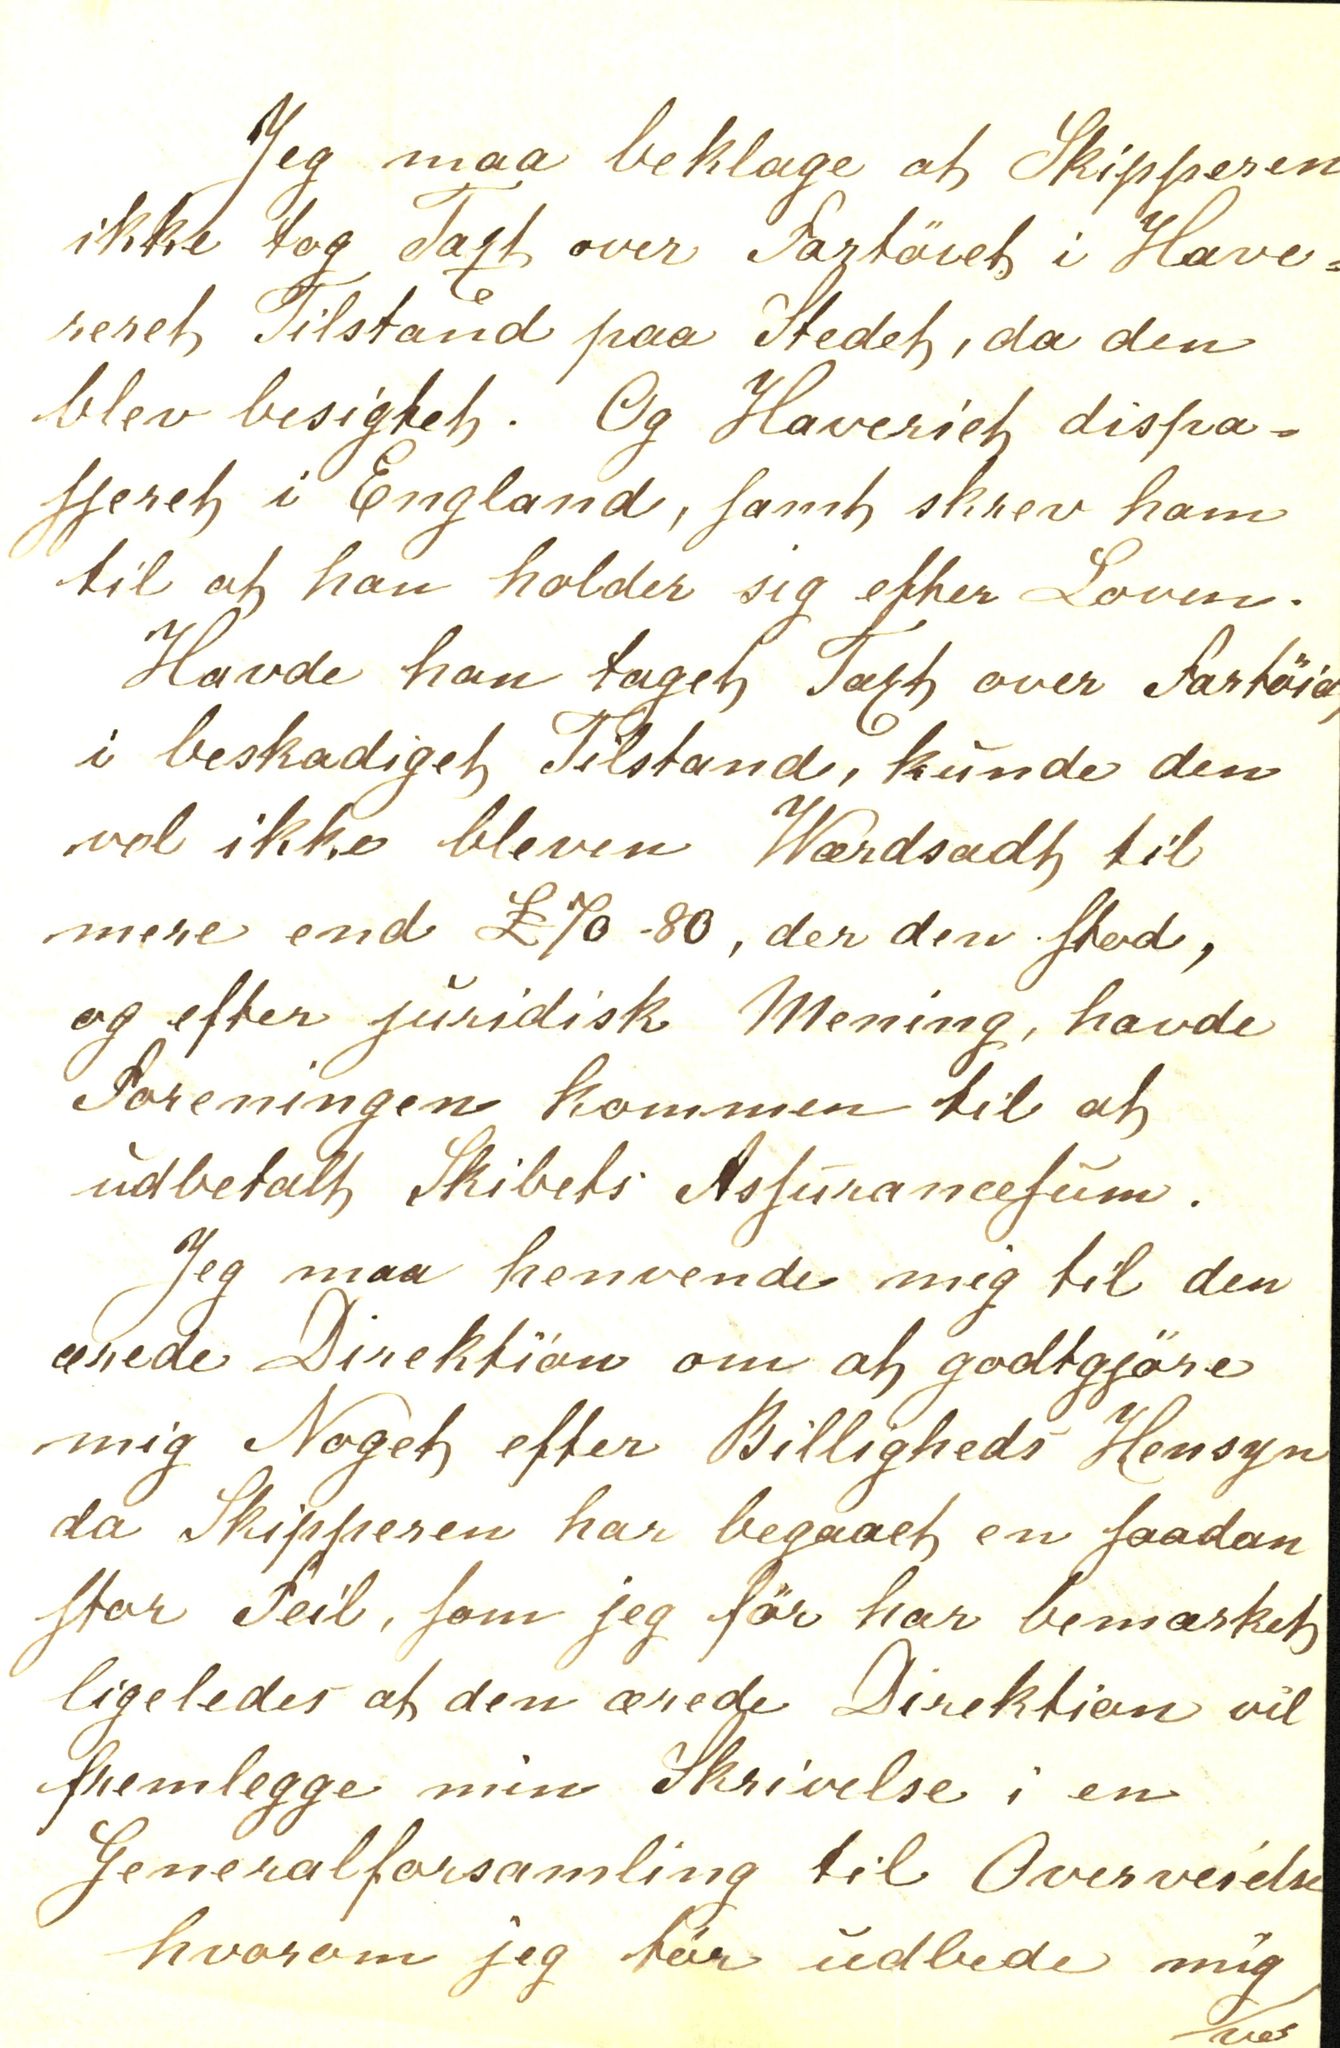 Jeg maa beklage at Skipperen
ikke tog Taxt over Fartövet i Have-
reret Tilstand paa Stedet, da den
blev besigtet. Og Haveriet dispa-
sjeret i England, samt skrev ham
til at han holder sig efter Loven.
Havde han taget Taxt over Fartöiet
i beskadiget Tilstand, kunde den
vel ikke bleven Værdsadt til
mere end £ 70-80, der den stod,
og efter juridisk Mening, havde
Foreningen kommen til at
udbetalt Skibets Assurancesum.
Jeg maa henvende mig til den
ærede Direktion om at godtgjöre
mig Noget efter Billigheds Hensyn
da Skipperen har begaaet en saadan
stor Feil, som jeg för har bemærket
ligeledes at den ærede Direktion vil
fremlegge min Skrivelse i en
Generalforsamling til Overveielse
hvorom jeg tör udbede mig